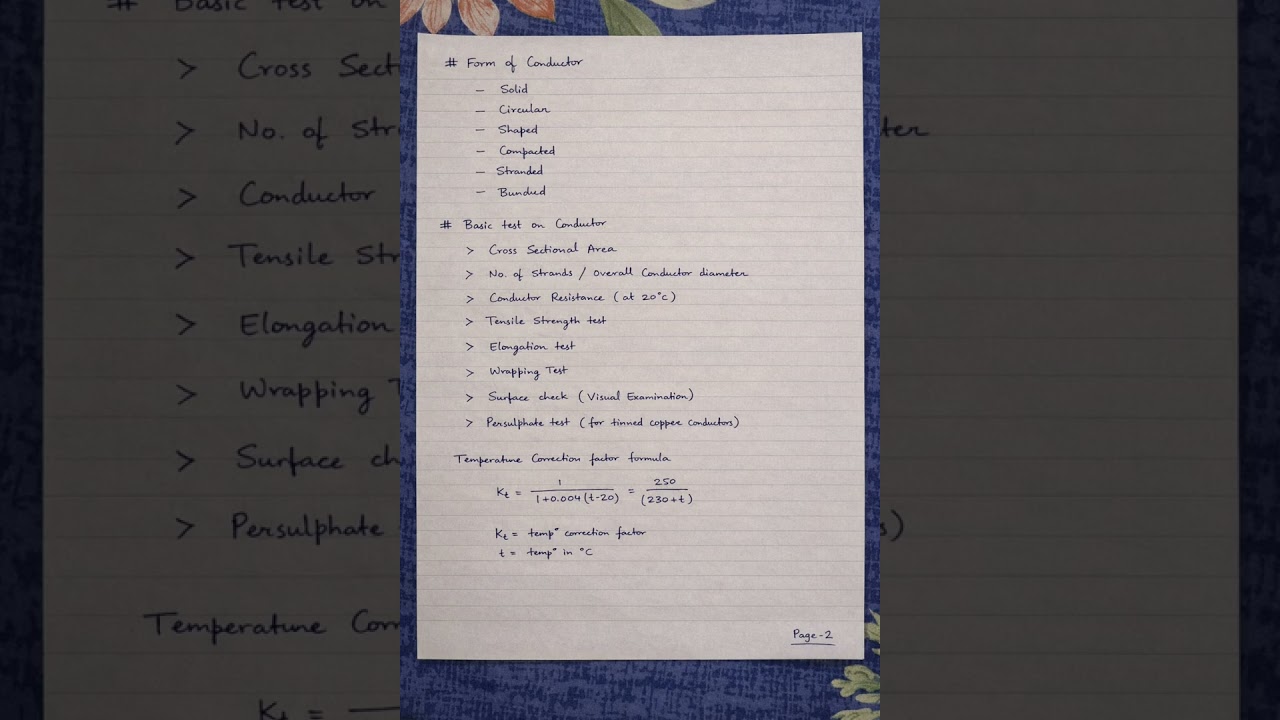 # Form of Conductor
- Solid
- Circular
- Shaped
- Compacted
- Stranded
- Bunched
# Basic test on Conductor
> Cross Sectional Area
> No. of Strands / Overall Conductor diameter
> Conductor Resistance (at 20°C)
> Tensile Strength test
> Elongation test
> Wrapping Test
> Surface check (Visual Examination)
> Persulphate test (for tinned copper conductors)
Temperature Correction factor formula
Kt = 1 / 1+0.004(t-20) = 250 / (230+t)
Kt = temp° correction factor
t = temp° in °C
Page-2